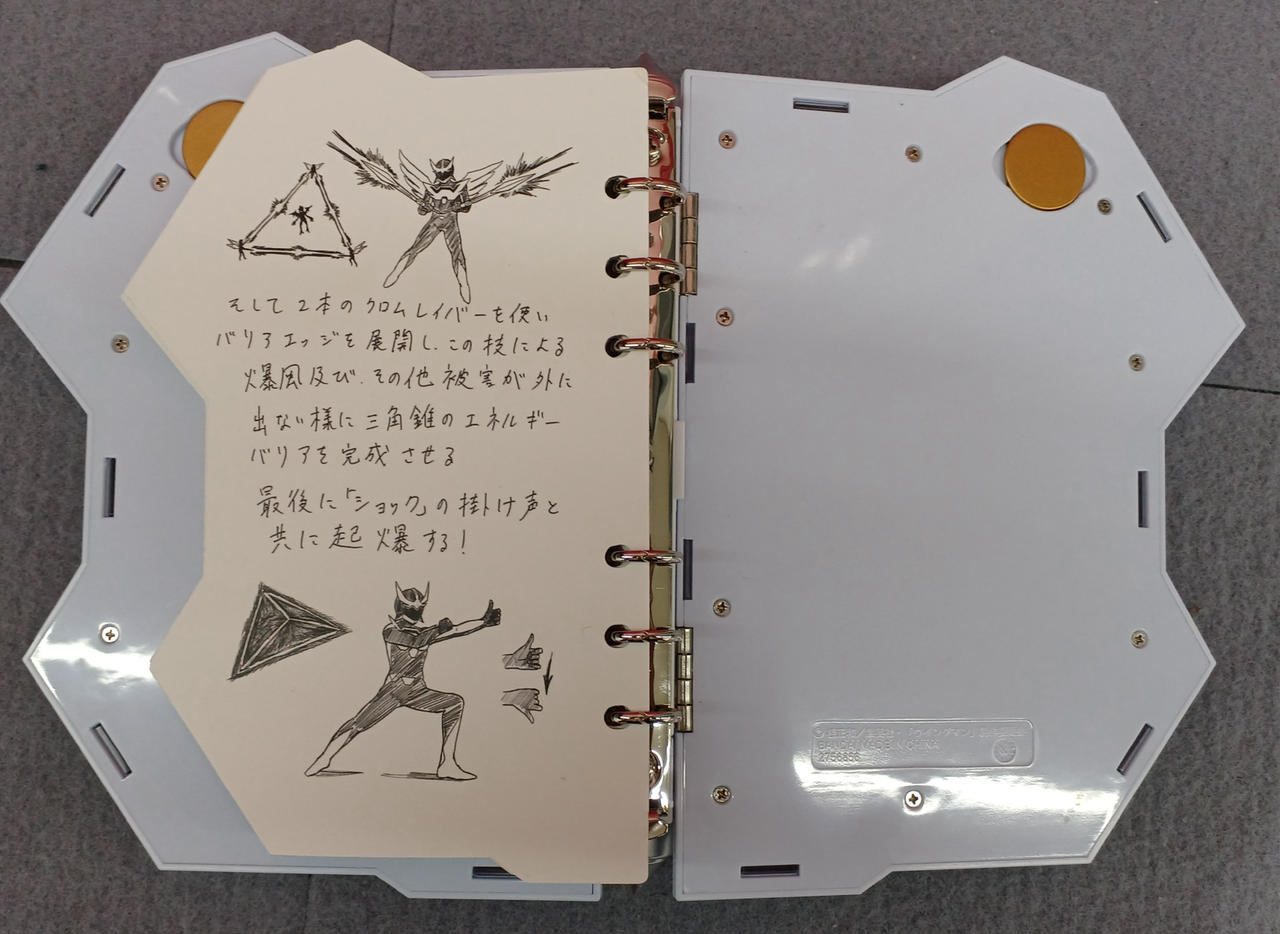 そして2本のクロムレイバーを使い
バリアエッジを展開し、この技による
爆風及び、その他被害が外に
出ない様に三角錐のエネルギー
バリアを完成させる
最後に「ショック」の掛け声と
共に起爆する!
桂正和/集英社・「ウイングマン」
BANDAI MADE IN CHINA
2756856